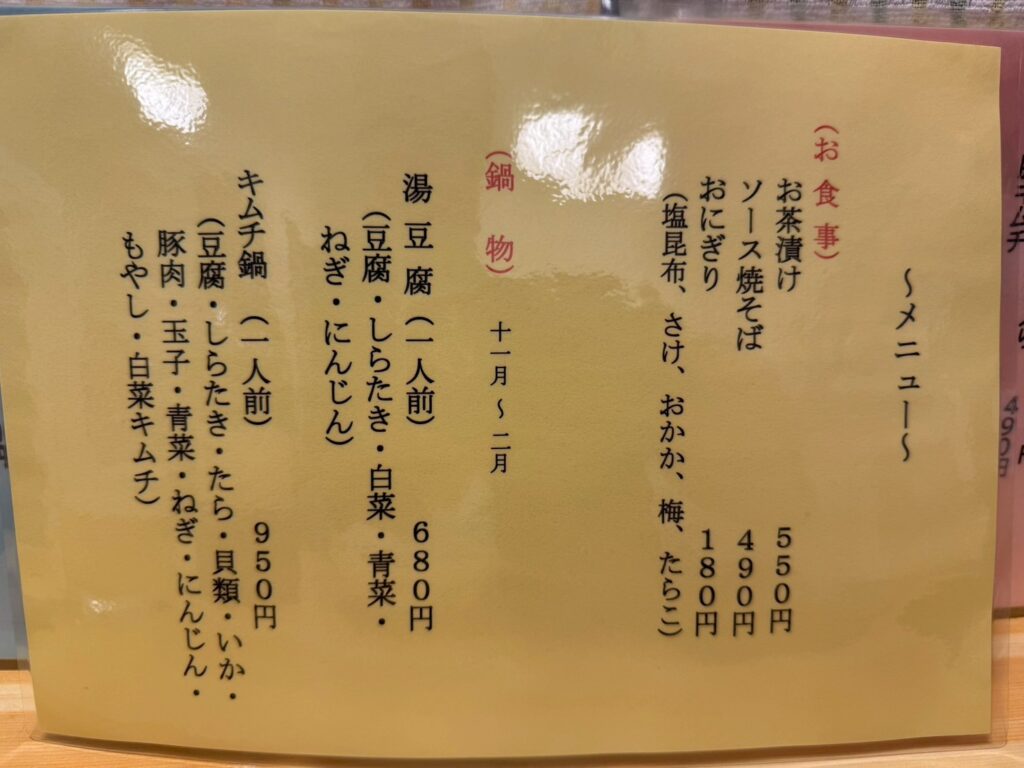 ～メニュー～
（お食事）
お茶漬け 550円
ソース焼そば 490円
おにぎり 180円
（塩昆布、さけ、おかか、梅、たらこ）
（鍋物） 十一月～二月
湯豆腐（一人前） 680円
（豆腐・しらたき・白菜・青菜・
ねぎ・にんじん）
キムチ鍋（一人前） 950円
（豆腐・しらたき・たら・貝類・いか・
豚肉・玉子・青菜・ねぎ・にんじん・
もやし・白菜キムチ）
490円